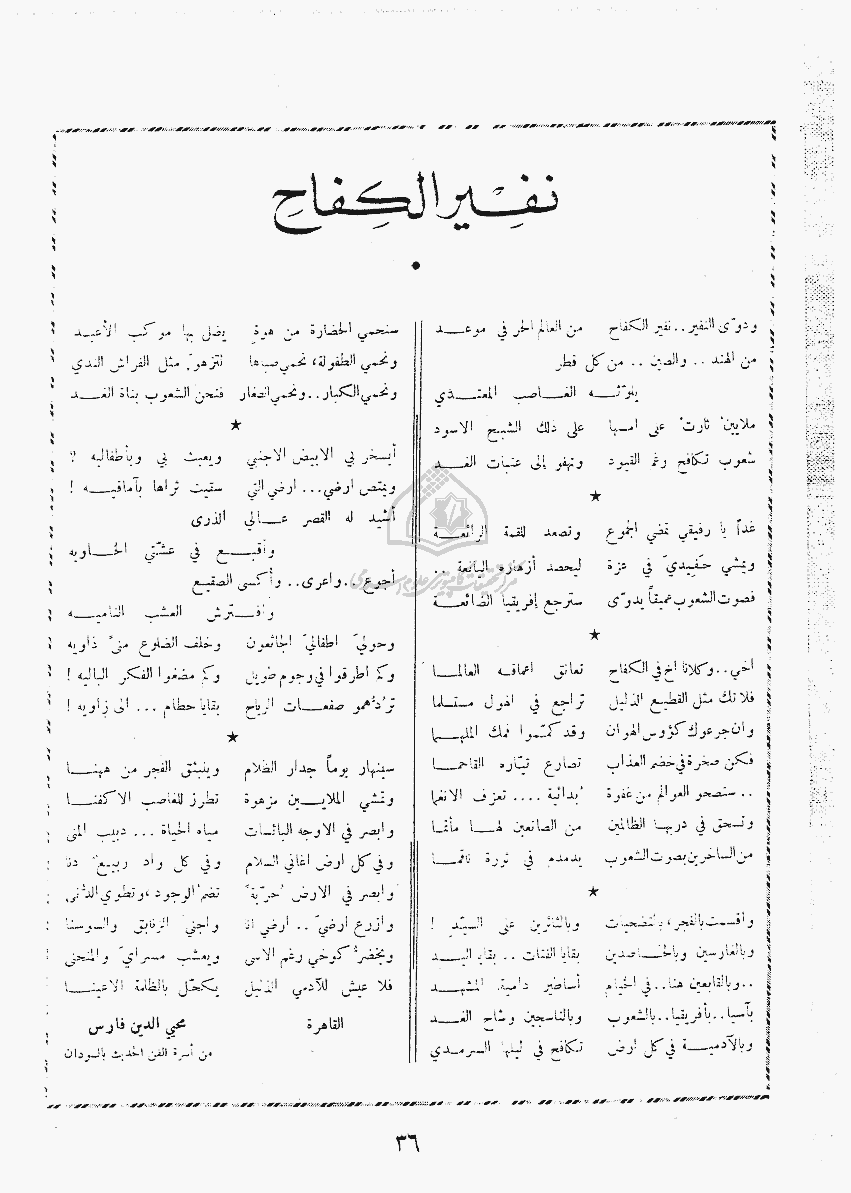 نفير الكفاح
ودوّى النفير.. نفير الكفاح من العالم الحر في موعد
من الهند .. والصين .. من كل قطر
يلوّثه الغاصب المعتدي
ملايين ثارت على امسها على ذلك الشبح الاسود
شعوب تكافح رغم القيود وتهفو إلى عتبات الغد
★
غداً يا رفيقي تمضي الجموع وتصعد للقمة الرائعة
ويمشي حفيدي في عزة ليحصد أزهاره اليانعة ..
فصوت الشعوب عميقاً يدوّى سترجع إفريقيا الضائعة
★
أخي.. وكلانا اخ في الكفاح تعانق اعماقه العالما
فلا تك مثل القطيع الذليل تراجع في الهول مستسلما
وان جرعوك كؤوس الهوان وقد كمّموا فمك الملهما
فكن صخرة في خضم العذاب تصارع تيّاره القاحما
.. ستصحو العوالم من غفوة بدائية .... تعزف الانغما
وتسحق في دربها الظالمين من الصانعين لها مأتما
من الساخرين بصوت الشعوب يدمدم في ثورة ناقما
★
واقسمت بالفجر، بالتضحيات وبالثائرين على السيّد !
وبالغارسين وبالحاصدين بقايا الفتات .. بقايا اليد
.. وبالقابعين هنا.. في الخيام أساطير دامية المشهد
بآسيا.. بأفريقيا.. بالشعوب وبالناسجين وشاح الغد
وبالآدمية في كل ارض تكافح في ليلها السرمدي
سنحمي الحضارة من هوة يضل بها موكب الأعبد
ونحمي الطفولة، نحمي صباها لتزهو مثل الفراش الندي
ونحمي الكبار.. ونحمي الصغار فنحن الشعوب بناة الغد
★
أيسخر بي الابيض الاجنبي ويعبث بي وبأطفاليه ؟
ويمتص ارضي... ارضي التي سقيت ثراها بآماقيه !
أشيد له القصر عالي الذرى
وأقبع في عشتي الخاويه
أجوع .. واعرى.. وأكسى الصقيع
وافترش العشب الناميه
وحولي اطفالي الجائعون وخلف الضلوع منىً ذاويه
وكم اطرقوا في وجوم طويل وكم مضغوا الفكر الباليه !
تردّهمو صفعات الرياح بقايا حطام ... الى زاويه !
★
سينهار يوماً جدار الظلام وينبثق الفجر من ههنا
وتمشي الملايين مزهوة تطرز للغاصب الاكفنا
وابصر في الاوجه البائسات مياه الحياة ... دبيب المنى
وفي كل ارض اغاني السلام وفي كل واد ربيع دنا
وابصر في الارض حرّية تضم الوجود، وتطوي الدنى
وأزرع ارضي .. ارضي انا واجني الزنابق والسوسنا
ويخضرّ كوخي رغم الاسى ويعشب مسراي والمنحنى
فلا عيش للآدمي الذليل يكحّل بالظلمة الاعينا
القاهرة محيي الدين فارس
من أسرة الفن الحديث بالسودان
٣٦